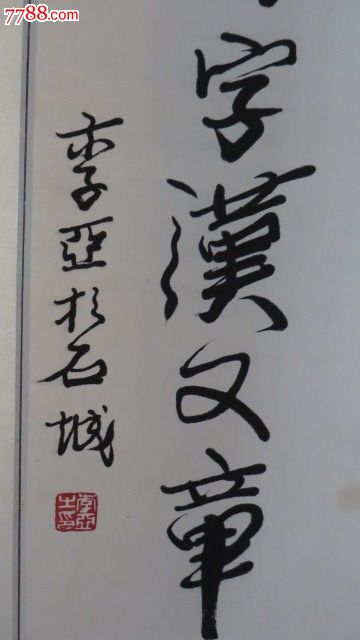 7788.com
字漢文章
李亞於石城